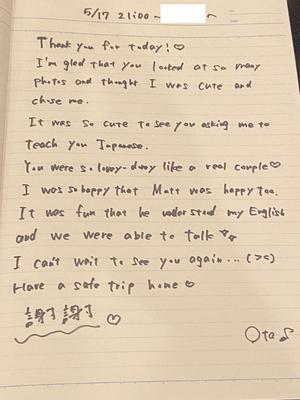 5/17 21:00 ~
Thank you for today! ♡
I'm glad that you looked at so many
photos and thought I was cute and
chose me.
It was so cute to see you asking me to
teach you Japanese.
You were so lovey-dovey like a real couple♡
I was so happy that Matt was happy too.
It was fun that he understood my English
and we were able to talk
I can't wait to see you again... (><)
Have a safe trip home ♡
謝了 謝了 ♡